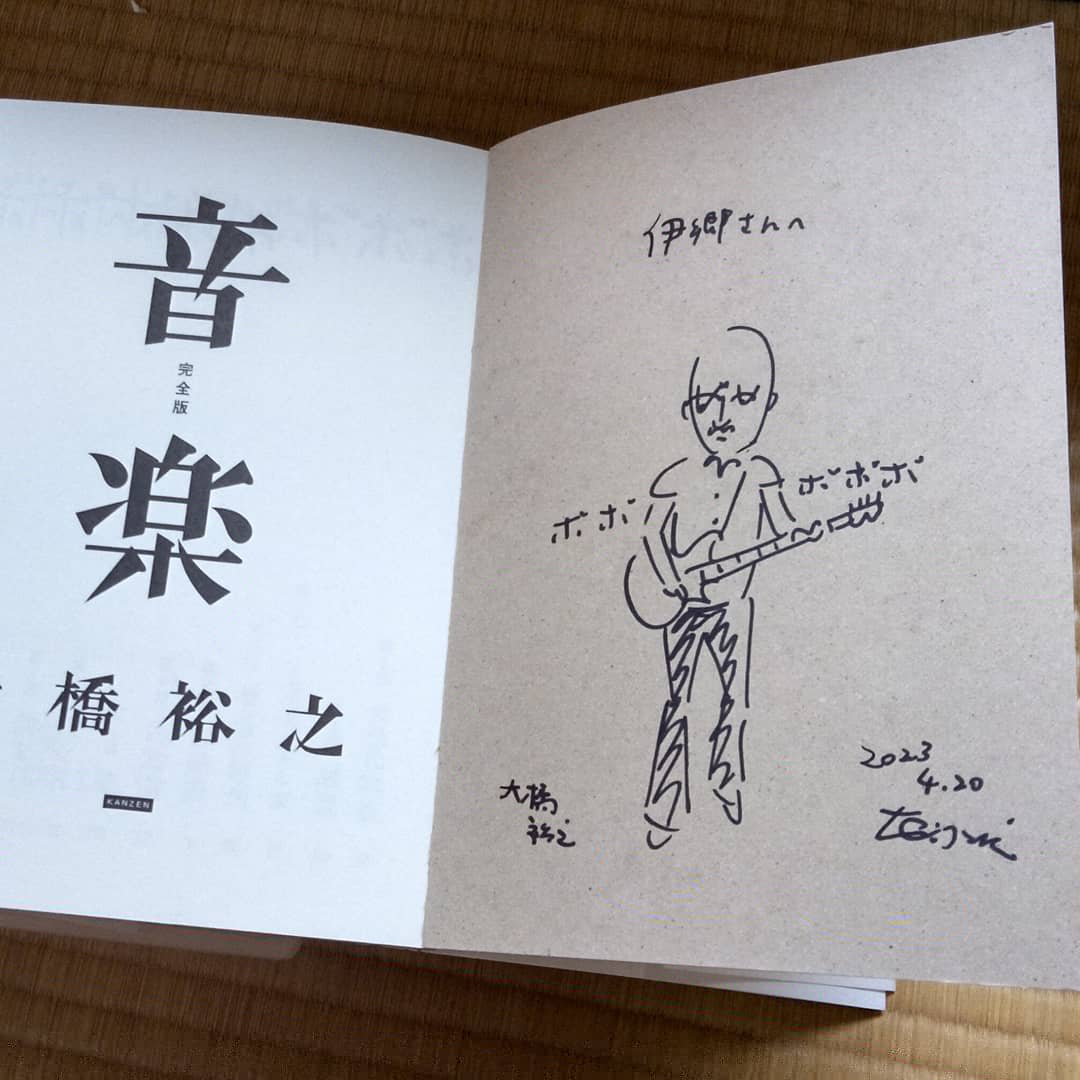 音
完全版
楽
橋裕之
KANZEN
伊郷さんへ
ボボ ボボボ
大橋
裕之
2023
4.20